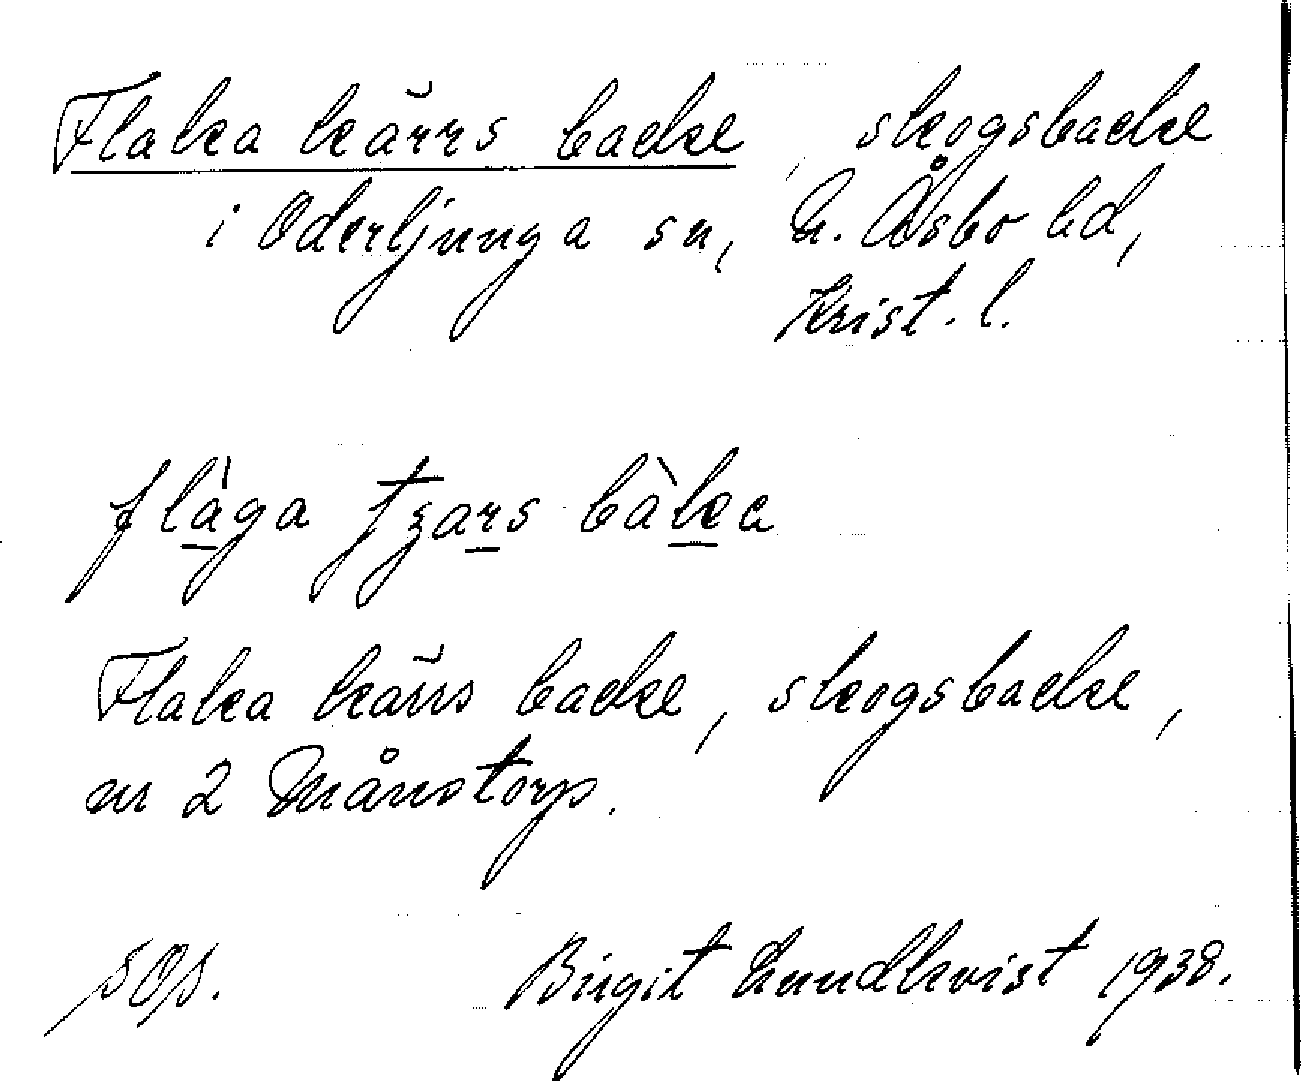 Flaka kärrs backe, skogsbacke
i Oderljunga sn, N. Åsbo hd,
Krist. l.
flàga tʒars bàka
Flaka kärrs backe, skogsbacke,
nr 2 Månstorp.
SOS. Birgit Lundkvist 1938.